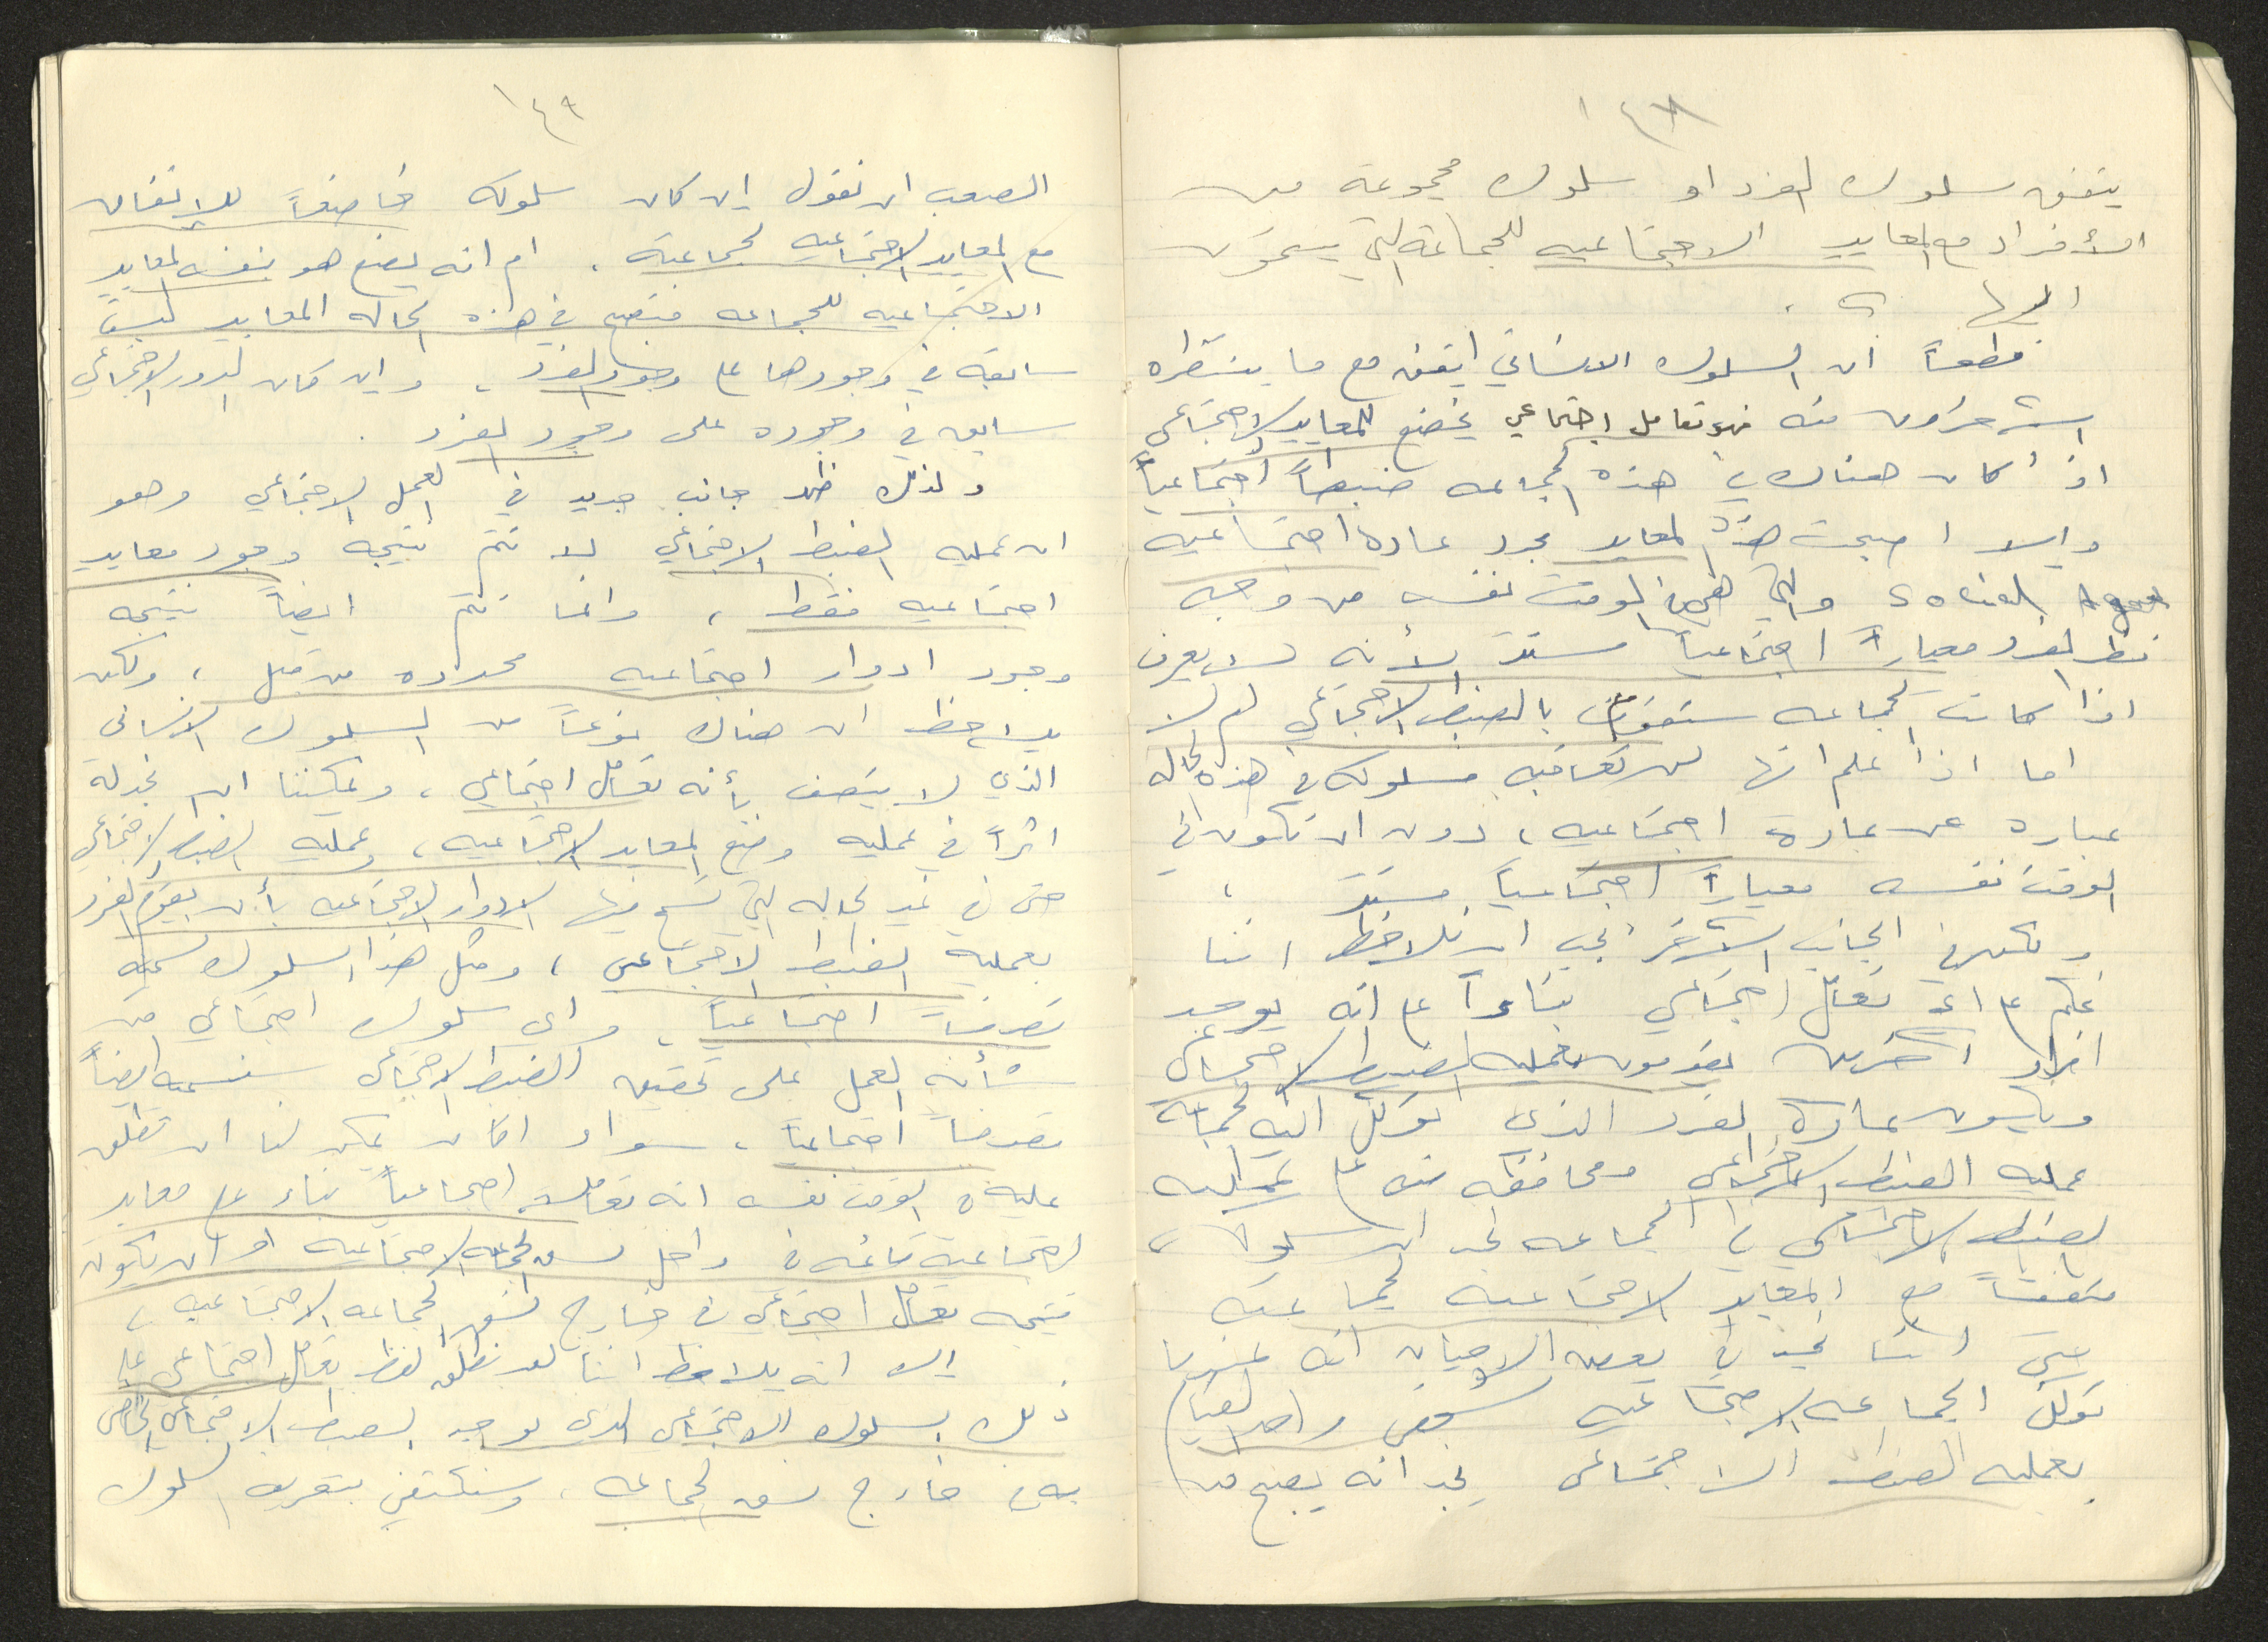 ١٤٨
يتفق سلوك الفرد او سلوك مجموعة من
الأفراد مع المعايير الاجتماعيه للجماعة التي ينتمون
اليها ؟ .
فطعاً ان السلوك الانساني اتفق مع ما ينتظره
الآخرون منه فهو تعامل اجتماعي يخضع للمعايير الاجتماعي
اذا كان هناك في هذه الجماعه ضبطاً اجتماعياً
والا اصبحت هذه المعايير مجرد عاده اجتماعيه
والتي هي في الوقت نفسه من وجهه
نظر الفرد معياراً اجتماعياً لأنه لا يعرف
اذا كانت الجماعه ستقوم بالضبط الاجتماعي ام لا
اما اذا علم انها لن تعاقبه فسلوكه في هذه الحاله
عباره عن عادة اجتماعيه ، دون ان تكون في
الوقت نفسه معياراً اجتماعياً ،
ولكن في الجانب الآخر يجب ان نلاحظ اننا
نحكم على اي تعامل اجتماعي بناءاً على انه يوجد
افراد آخرين يقومون بعمليه الضبط الاجتماعي
ويكون عادة الفرد الذي توكل اليه الجماعة
عمليه الضبط الاجتماعي ومحافظه منه على عمليه
الضبط الاجتماعي في الجماعه نجد ان سلوكه
متفقاً مع المعايير الاجتماعيه لجماعته
على اننا نجد في بعض الاحيان انه عندما
توكل الجماعه الاجتماعيه شخص واحد للقيام
بعمليه الضبط الاجتماعي نجد انه يصبح من
١٤٩
الصعب ان نقول ان كان سلوكه خاضعاً للاتفاق
مع المعايير الاجتماعيه لجماعته ، ام انه يضع هو بنفسه المعايير
الاجتماعيه للجماعه فتصبح في هذه الحاله المعايير ليست
سابقه في وجودها على وجود الفرد ، وان كان الدور الاجتماعي
سابق في وجوده على وجود الفرد .
ولذلك ظهر جانب جديد في العمل الاجتماعي وهو
ان عمليه الضبط الاجتماعي لا تتم نتيجه وجود معايير
اجتماعيه فقط ، وانما تتم ايضاً نتيجه
وجود ادوار اجتماعيه محدده من قبل ، ولكن
يلاحظ ان هناك نوعاً من السلوك الانساني
الذي لا يتصف بأنه تعامل اجتماعي ، ويمكننا ان نجد له
اثراً في عمليه وضع المعايير الاجتماعيه ، وعمليه الضبط الاجتماعي
حتى في غير الحاله التي تسمح فيها الادوار الاجتماعيه بأن يقوم الفرد
بعملية الضبط الاجتماعي ، ومثل هذا السلوك نسميه
تصرفاً اجتماعياً ، واي سلوك اجتماعي من
شأنه العمل على تحقيق الضبط الاجتماعي سنسميه ايضاً
تصرفاً اجتماعياً ، سواء اكان يمكن لنا ان نطلق
عليه في الوقت نفسه انه تعاملاً اجتماعياً بناء على معايير
اجتماعية قائمه في داخل نسق الجماعه الاجتماعيه او ان يكون
نتيجه تعامل اجتماعي في خارج نسق الجماعه الاجتماعيه ،
الا انه يلاحظ اننا لن نطلق لفظ تعامل اجتماعي على
ذلك السلوك الاجتماعي الذي يوجد الضبط الاجتماعي الخاص
به في خارج نسق الجماعه ، وسنكتفي بتعريف السلوك